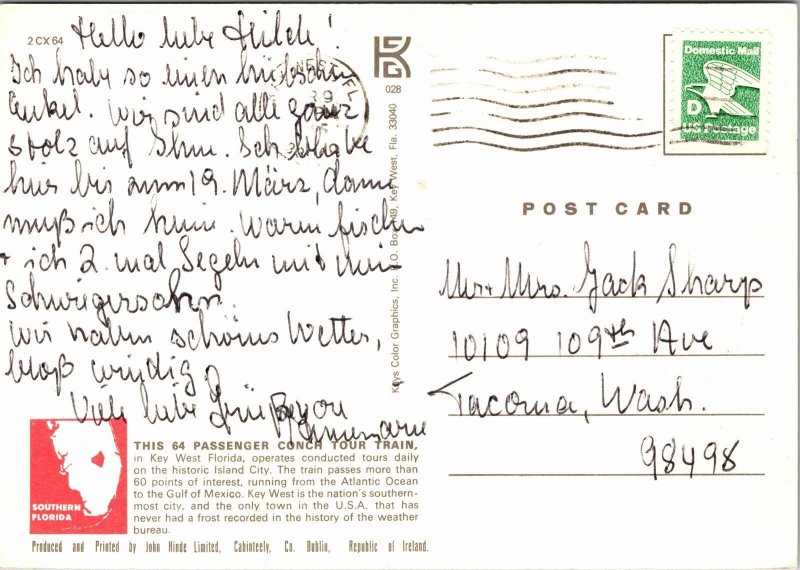 2CX64
Hello liebe Hilde!
Ich habe so einen hübschen
Enkel. Wir sind alle ganz
stolz auf Ihm. Ich bleibe
hier bis zum 19. März, dann
muß ich heim. Waren fischen
+ ich 2. mal Segeln mit dem
Schwiegersohn.
Wir haben schönes Wetter,
bloß windig
Viele liebe Grüße von
Annemarie
028
Keys Color Graphics, Inc., P.O. Box 49, Key West, Fla. 33040
Domestic Mail
D
US Postage
POST CARD
Mr + Mrs. Jack Sharp
10109 109th Ave
Tacoma, Wash.
98498
SOUTHERN
FLORIDA
THIS 64 PASSENGER CONCH TOUR TRAIN,
in Key West Florida, operates conducted tours daily
on the historic Island City. The train passes more than
60 points of interest, running from the Atlantic Ocean
to the Gulf of Mexico. Key West is the nation's southern-
most city, and the only town in the U.S.A. that has
never had a frost recorded in the history of the weather
bureau.
Produced and Printed by John Hinde Limited, Cabinteely, Co. Dublin, Republic of Ireland.